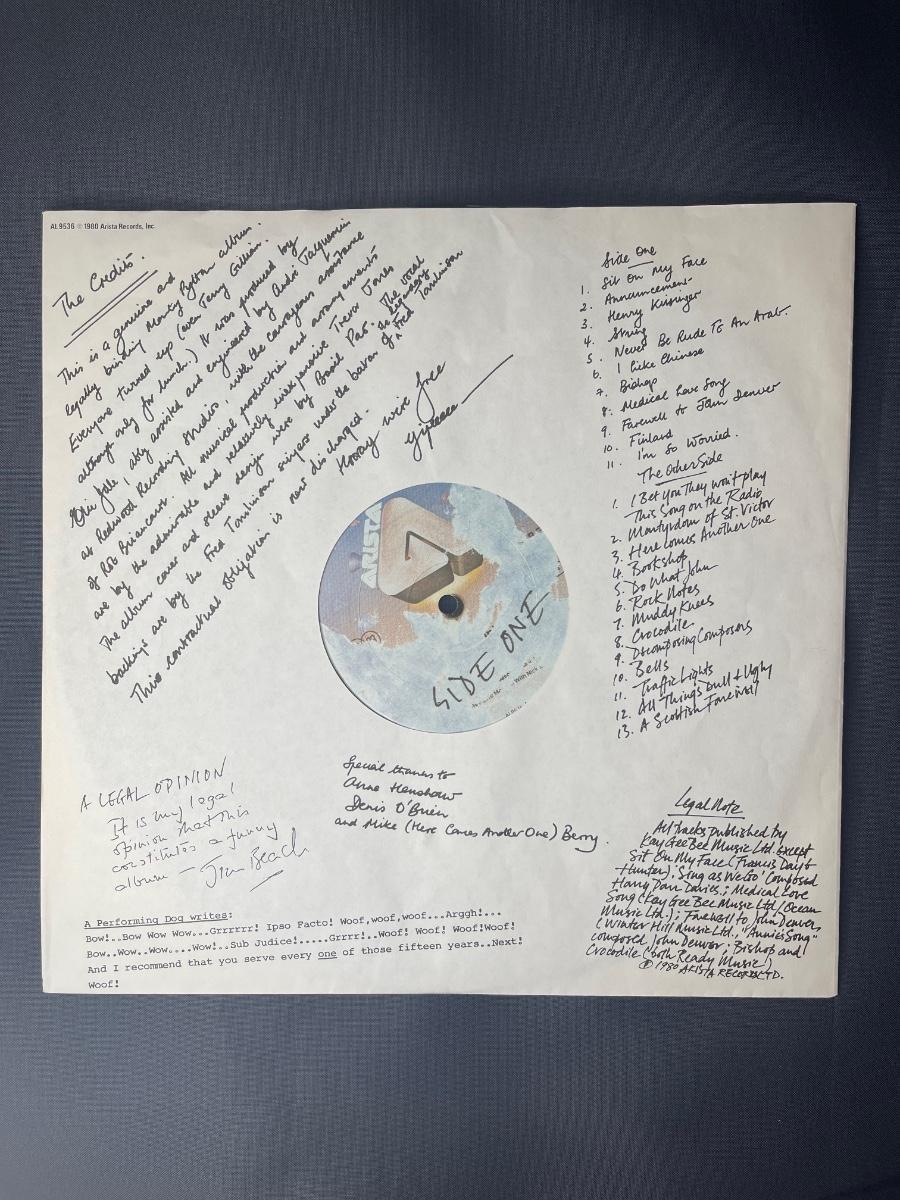 AL9536 © 1980 Arista Records, Inc.
The Credits.
This is a genuine and
legally binding Monty Python album.
Everyone turned up (even Terry Gilliam
although only for lunch.) It was produced by
Eric Idle, ably assisted and engineered by André Jacquemin
at Redwood Recording Studios, with the courageous assistance
of Rob Briancourt. All musical production and arrangements
are by the admirable and relatively inexpensive Trevor Jones
The album cover and sleeve design were by Basil Pao. The vocal
backings are by the Fred Tomlinson singers under the baton of the legendary Fred Tomlinson
This contractual obligation is now discharged.
Hooray we're free
Side One
1. Sit On My Face
2. Announcement
3. Henry Kissinger
4. String
5. Never Be Rude To An Arab.
6. I Like Chinese
7. Bishop
8. Medical Love Song
9. Farewell to John Denver
10. Finland
11. I'm So Worried.
The Other Side
1. I Bet You They won't play
This Song on the Radio
2. Martyrdom of St. Victor
3. Here Comes Another One
4. Bookshop
5. Do What John
6. Rock Notes
7. Muddy Knees
8. Crocodile
9. Decomposing Composers
10. Bells
11. Traffic Lights
12. All Things Dull & Ugly
13. A Scottish Farewell
ARISTA
SIDE ONE
A LEGAL OPINION
It is my legal
opinion that this
constitutes a funny
album —
Jim Beach
Special thanks to
Anne Henshaw
Denis O'Brien
and Mike (Here Comes Another One) Berry.
Legal Note
All tracks published by
Kay Gee Bee Music Ltd. except
Sit On My Face (Francis Day &
Hunter). 'Sing as We Go' Composed
Harry Parr Davies.; Medical Love
Song (Kay Gee Bee Music Ltd/Ocean
Music Ltd.); Farewell to John Denver,
(Winter Hill Music Ltd., "Annie's Song"
composed John Denver; Bishop and
Crocodile (both Ready Music)
℗ 1980 ARISTA RECORDS LTD.
A Performing Dog writes:
Bow!..Bow Wow Wow...Grrrrrr! Ipso Facto! Woof,woof,woof...Arggh!...
Bow..Wow..Wow....Wow!..Sub Judice!.....Grrrr!..Woof! Woof! Woof!Woof!
And I recommend that you serve every one of those fifteen years..Next!
Woof!